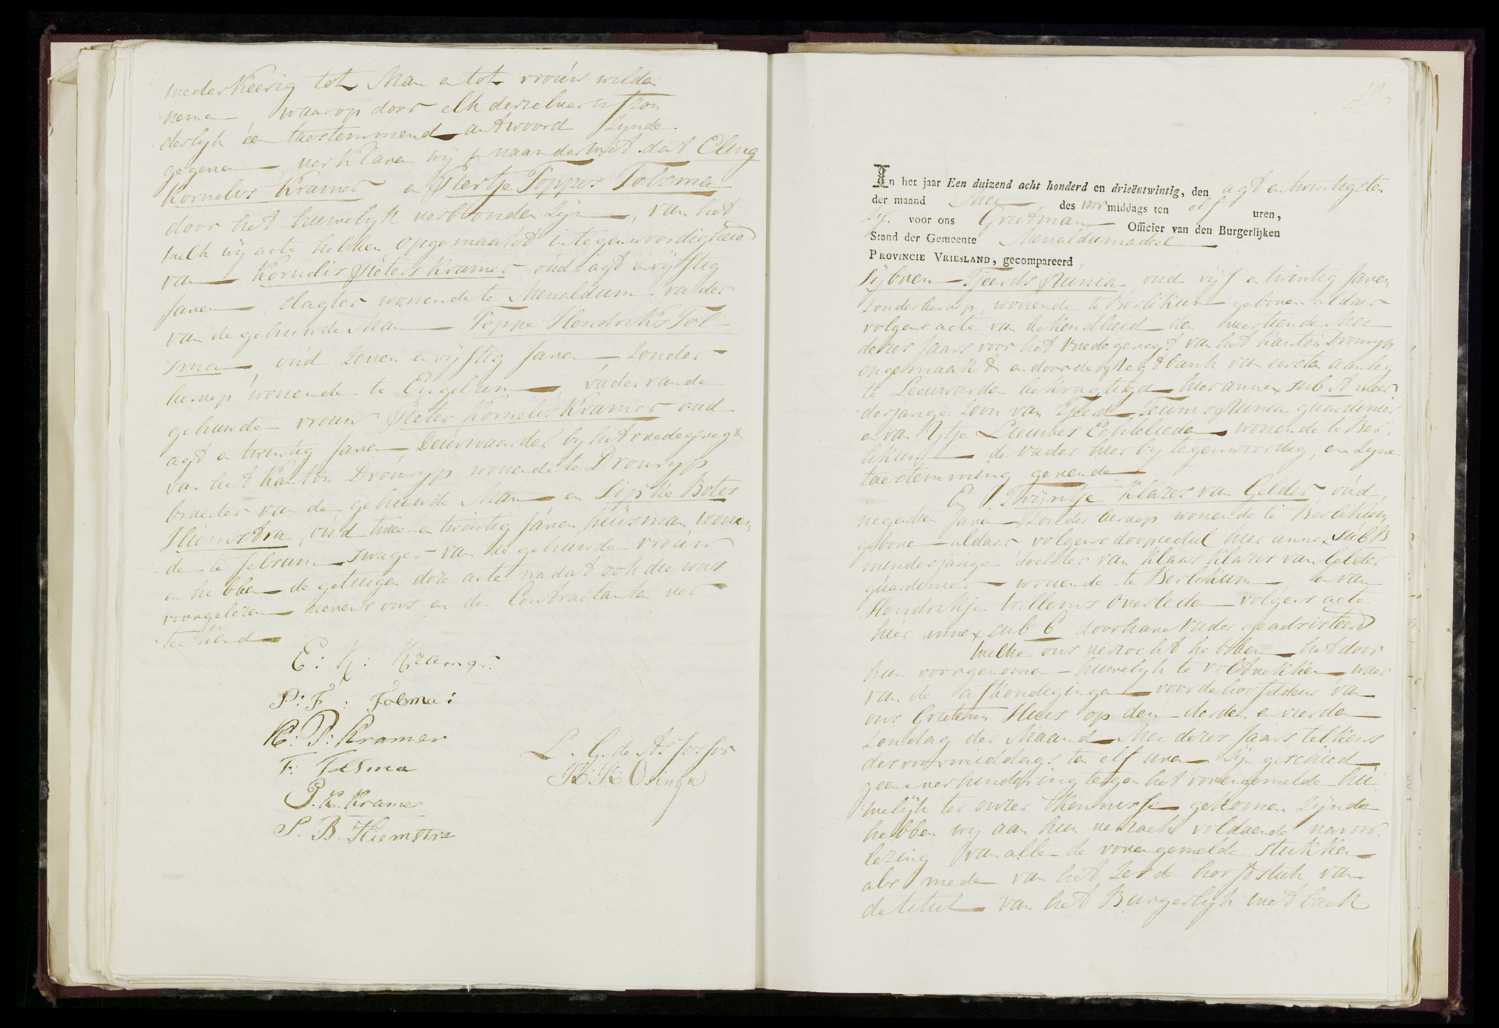 wederkeerig tot Man en tot vrouw wilde
neme waarop door elk derzelver afzon
derlijk een toestemmend antwoord zynde
gegeven verklaren wy in naam der wet dat Eling
Kornelis Kramer en Piertje Toppes Tolsma
door het huwelyk verbonden zyn, van het
welk wy acte hebben opgemaakt in tegenwoordigheid
van Kornelis Pieters Kramer oud agt en vyftig
Jaren slagter wonende te Menaldum vader
van de gehuwde Man Toppe Hendriks Tol-
sma, oud zeven en vyftig Jaren zonder
beroep wonende te Engelum vader van de
gehuwde vrouw Pieter Kornelis Kramer oud
agt en twintig Jaren Deurwaarder by het vredegeregt
van het Kanton Dronryp wonende te Dronryp
broeder van de gehuwde Man en Sipke Botes
Hiemstra, oud twee en twintig Jaren huisman wonen
de te Jelsum swager van de gehuwde vrouw
en hebben de getuigen deze acte nadat zoh die was
voorgelezen nevens ons en de Contractanten ver
tekend
E: K: Kramer:
P: T: Tolsma:
K: P: Kramer
T: Tolsma
P. K. Kramer
S. B. Hiemstra
L. G. de
K: K Osinga
In het jaar Een duizend acht honderd en drieëntwintig, den agt en twintigsten
der maand Mei, des voormiddags ten elf uren,
zy. voor ons Grietman Officier van den Burgerlijken
Stand der Gemeente Menaldumadeel
PROVINCIE VRIESLAND, gecompareerd
Sijbren Tjeerds Runia oud vijf en twintig Jaren
zonder beroep, wonende te Berlikum geboren aldaar
volgens acte van bekendheid den veertiende Mei
dezer Jaars voor het Vredegeregt van het Kanton Dronryp
opgemaakt en door de regtbank van eerste aanleg
te Leeuwarden bekragtigd hier annex sub A meer
derjarige zoon van Tjeerd Runia guardenier
en van Ytje wonende te Ber-
likum de vader hier by tegenwoordig, en zyne
toestemming gevende
En Trijntje Klazes van Gelder, oud
negentien Jaren zonder beroep wonende te Berlikum
geboren aldaar volgens doopcedul hier annex sub B
minderjarige dochter van Klaas Klazes van Gelder
guardenier wonende te Berlikum en van
Hendrikje Willems overleden volgens acte
hier annex sub C door haar Vader geadsisteerd
Welke ons verzocht hebben het door
hun voorgenomen huwelyk te voltrekken waar
van de afkondigingen voor de hoofddeur van
ons Gemeente Huis op den derden en vierden
zondag der Maand Mei dezer Jaars telkens
des voormiddags te elf uren zyn geschied
geene verhindering tegen het vorengemelde hu
welijk ter onzer kennisse gekomen zijnde
hebben wy aan hun verzoek voldaende na voor
lezing van alle de vorengemelde stukken
als mede van het zesde hoofdstuk van
de titul van het Burgerlijk wetboek